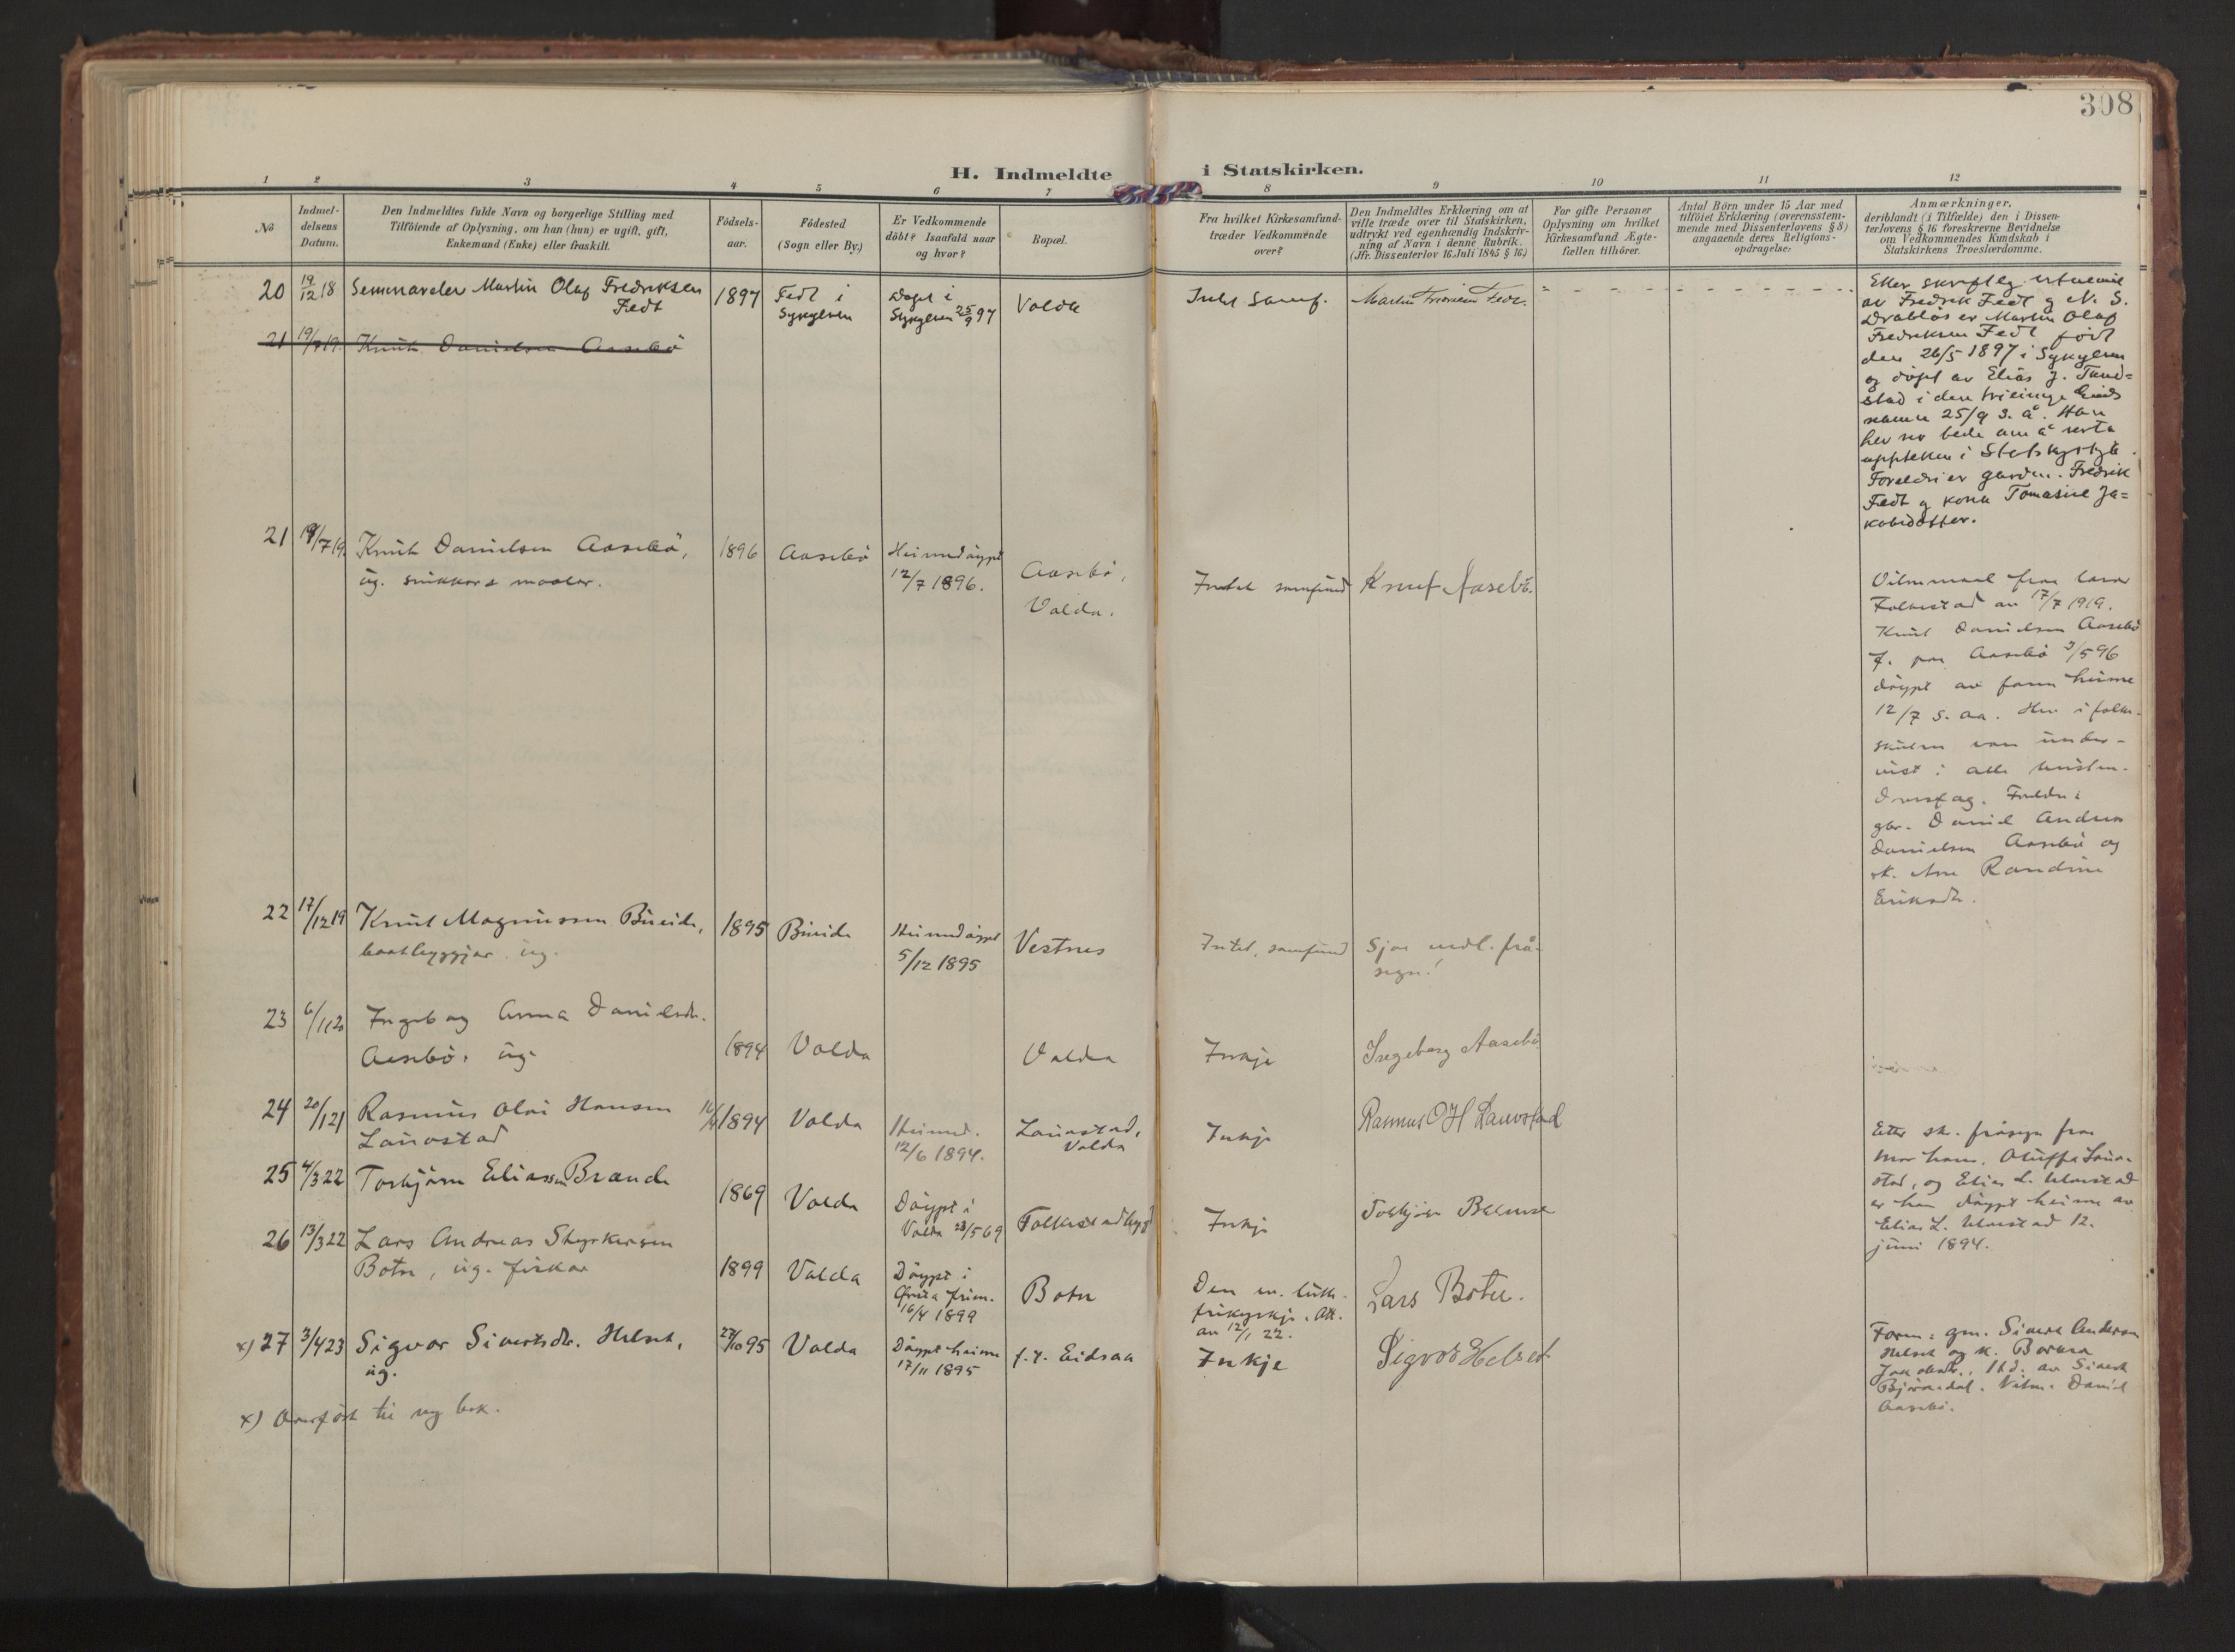 308
H. Indmeldte i Statskirken.
1 2 3 4 5 6 7 8 9 10 11 12
No
Indmel-
delsens
Datum.
Den Indmeldtes fulde Navn og borgerlige Stilling med
Tilföiende af Oplysning, om han (hun) er ugift, gift,
Enkemand (Enke) eller fraskilt.
Födsels-
aar.
Födested
(Sogn eller By.)
Er Vedkommende
döbt? Isaafald naar
og hvor?
Bopæl.
Fra hvilket Kirkesamfund-
træder Vedkommende
over?
Den Indmeldtes Erklæring om at
ville træde over til Statskirken,
udtrykt ved egenhændig Indskriv-
ning af Navn i denne Rubrik.
(Jfr. Dissenterlov 16. Juli 1845 § 16.)
For gifte Personer
Oplysning om hvilket
Kirkesamfund Ægte-
fællen tilhörer.
Antal Börn under 15 Aar med
tilföiet Erklæring (overensstem-
mende med Dissenterlovens § 8)
angaaende deres Religions-
opdragelse:
Anmærkninger,
deriblandt (i Tilfælde) den i Dissen-
terlovens § 16 foreskrevne Bevidnelse
om Vedkommendes Kundskab i
Statskirkens Troeslærdomme.
20 19/12 18 Seminarelev Martin Olaf Fredriksen
Fedt
1897
Fedt i
Sykylven
Døpt i
Sykylven 25/9 97
Volda
Intet Samf.
Martin Fedt.
Etter skriftleg
av Fredrik Fedt og N. S.
Drabløs er Martin Olaf
Fredriksen Fedt född
den 26/5 1897 i Sykylven
og døpt av Elias J.
stad i den
25/9 s. å. Han
hev no bede um å verta
uppteken i Statskyrkja.
Foreldri er gardm. Fredrik
Fedt og kona Tomasine Ja=
kobsdotter.
21 19/7 19. Knut Danielsen Aasebö
21 19/7 19. Knut Danielsen Aasebö,
ug. snikkar & maalar.
1896
Aasebö
Heimedöypt
12/7 1896.
Aasebö,
Volda.
Intet samfund
Knut Aasebö.
Vitnemaal fraa lærar
Folkestad av 17/7 1919.
Knut Danielsen Aasebö
f. paa Aasebö 3/5 96
döypt av faren heime
12/7 s. aa. Hev i folke-
skulen vore under-
vist i alle kristen-
domsfag. Foreldre:
gbr. Daniel Andreas
Danielsen Aasebö og
k. Ane Randine
Eriksdtr.
22 17/12 19 Knut Magnussen Bueide,
baatbyggjar. ug.
1895
Bueide
Heimedöypt
5/12 1895
Vestnes
Intet samfund
Sjaa medl. frå-
segn!
23 6/1 20 Ingeborg Anna Danielsdtr.
Aasebö. ug.
1894
Volda
Volda
Inkje
Ingeborg Aasebö
24 20/1 21 Rasmus Olai Hansen
Lauvstad
16/4 1894
Volda
Heimed.
12/6 1894.
Lauvstad,
Volda
Inkje
Rasmus O H Lauvstad
Etter sk. fråsegn fraa
mor hans, Oluffa Lauv-
stad, og Elias L. Ulvestad
er han döypt heime av
Elias L. Ulvestad 12.
juni 1894.
25 4/3 22 Torbjörn Eliassen Braude
1869
Volda
Döypt i
Volda 23/5 69
Folkestadbygd
Inkje
Torbjörn
26 13/3 22 Lars Andreas Styrkersen
Botn, ug. fiskar
1899
Volda
Döypt i
frim.
16/4 1899
Botn
Den ev. luth.
frikyrkje. Att.
av 12/1 22.
Lars Botn.
x) 27 3/4 23 Sigvor Sivertsdtr. Helset,
ug.
27/10 95
Volda
Döypt heime
17/11 1895
f. t. Eidsaa
Inkje
Sigvor Helset
Foreld: gm. Sivert Anderson
Helset og k. Berta
Jakobsdtr., Hd. av Sivert
Björnedal. Vitne: Daniel
Aasebö.
x) Overfört til ny bok.